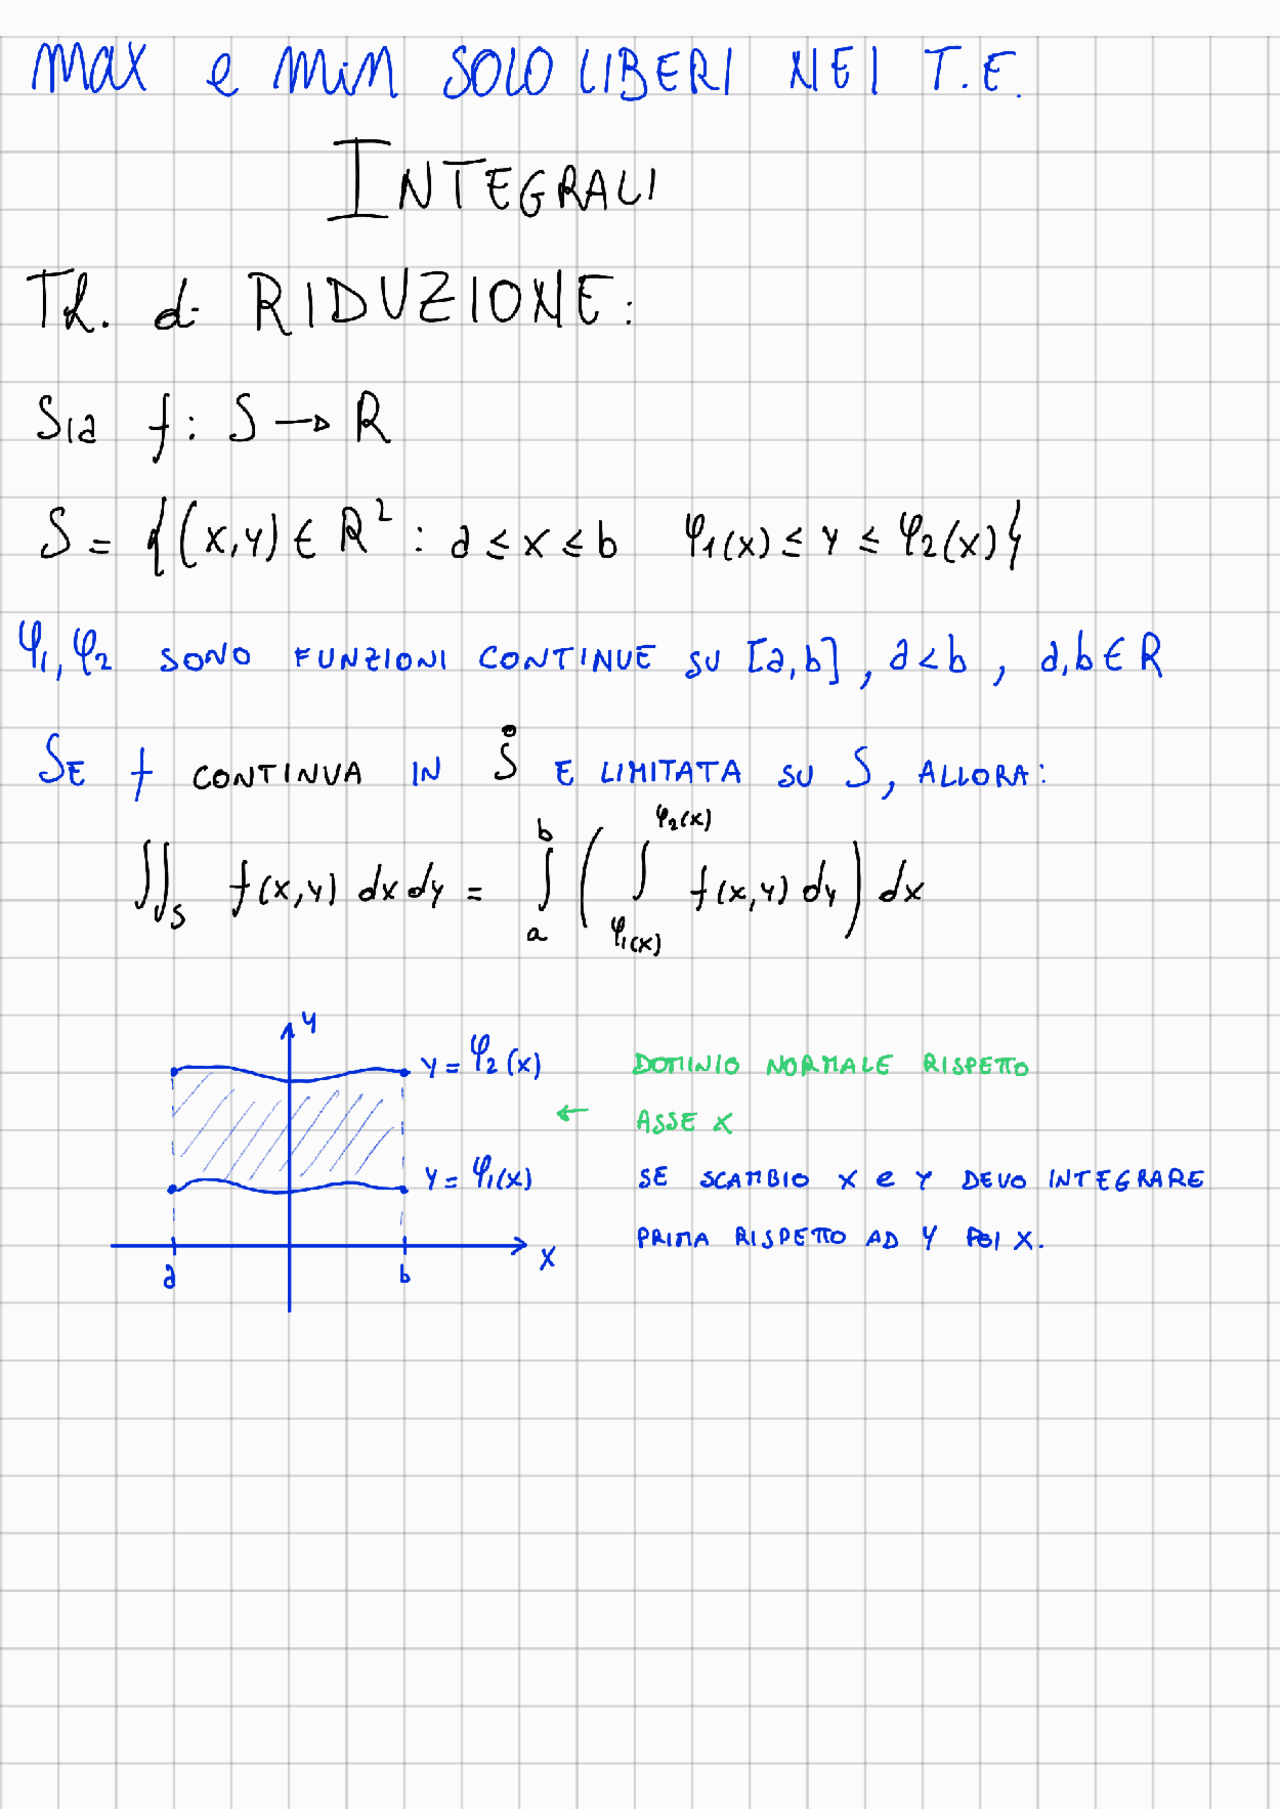 max e min SOLO LIBERI NEI T.E.
INTEGRALI
Th. di RIDUZIONE:
Sia f: S → R
S = {(x,y) ∈ R² : a ≤ x ≤ b φ₁(x) ≤ y ≤ φ₂(x)}
φ₁, φ₂ SONO FUNZIONI CONTINUE SU [a,b], a<b, a,b ∈ R
SE f CONTINUA IN S̊ E LIMITATA SU S, ALLORA:
∬_S f(x,y) dx dy = ∫_a^b ( ∫_{φ₁(x)}^{φ₂(x)} f(x,y) dy ) dx
y
y = φ₂(x)
DOMINIO NORMALE RISPETTO
← ASSE X
y = φ₁(x)
SE SCAMBIO X e Y DEVO INTEGRARE
PRIMA RISPETTO AD Y POI X.
x
a b